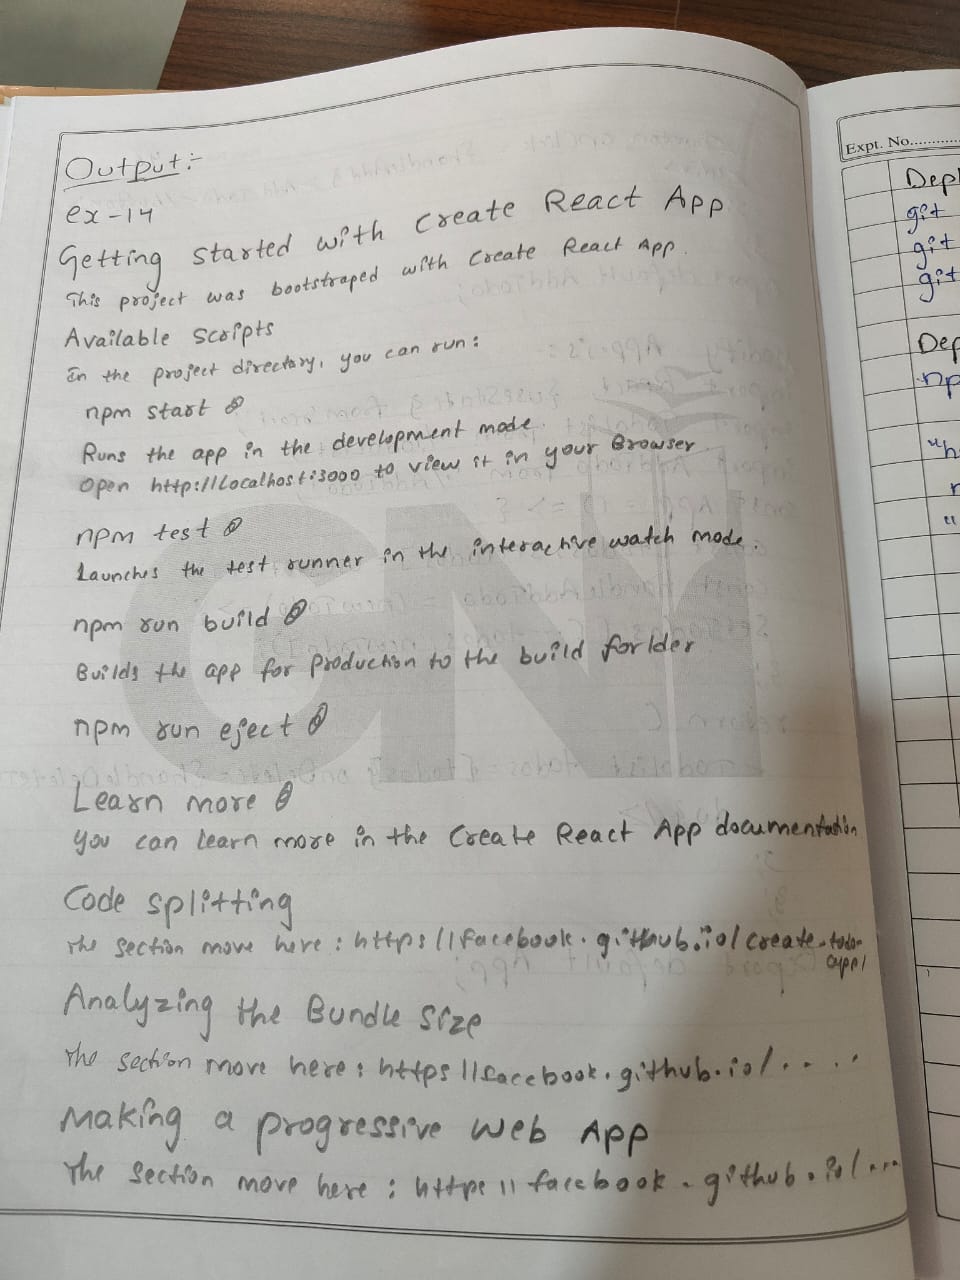 Output:-
ex-14
Getting started with Create React App
This project was bootstraped with Create React App.
Available Scripts
In the project directory, you can run:
npm start
Runs the app in the development mode.
Open http://Localhost:3000 to view it in your Browser
npm test
Launches the test runner in the interactive watch mode.
npm run build
Builds the app for production to the build forlder
npm run eject
Learn more
you can learn more in the Create React App documentation
Code splitting
The section move here : https://facebook.github.io/create-todo-app/
Analyzing the Bundle Size
The section move here : https//facebook.github.io/.....
Making a progressive Web App
The section move here : https// facebook.github.io/....
GNI
Expt. No.............
Depl
git
git
git
Dep
np
"h
r
"